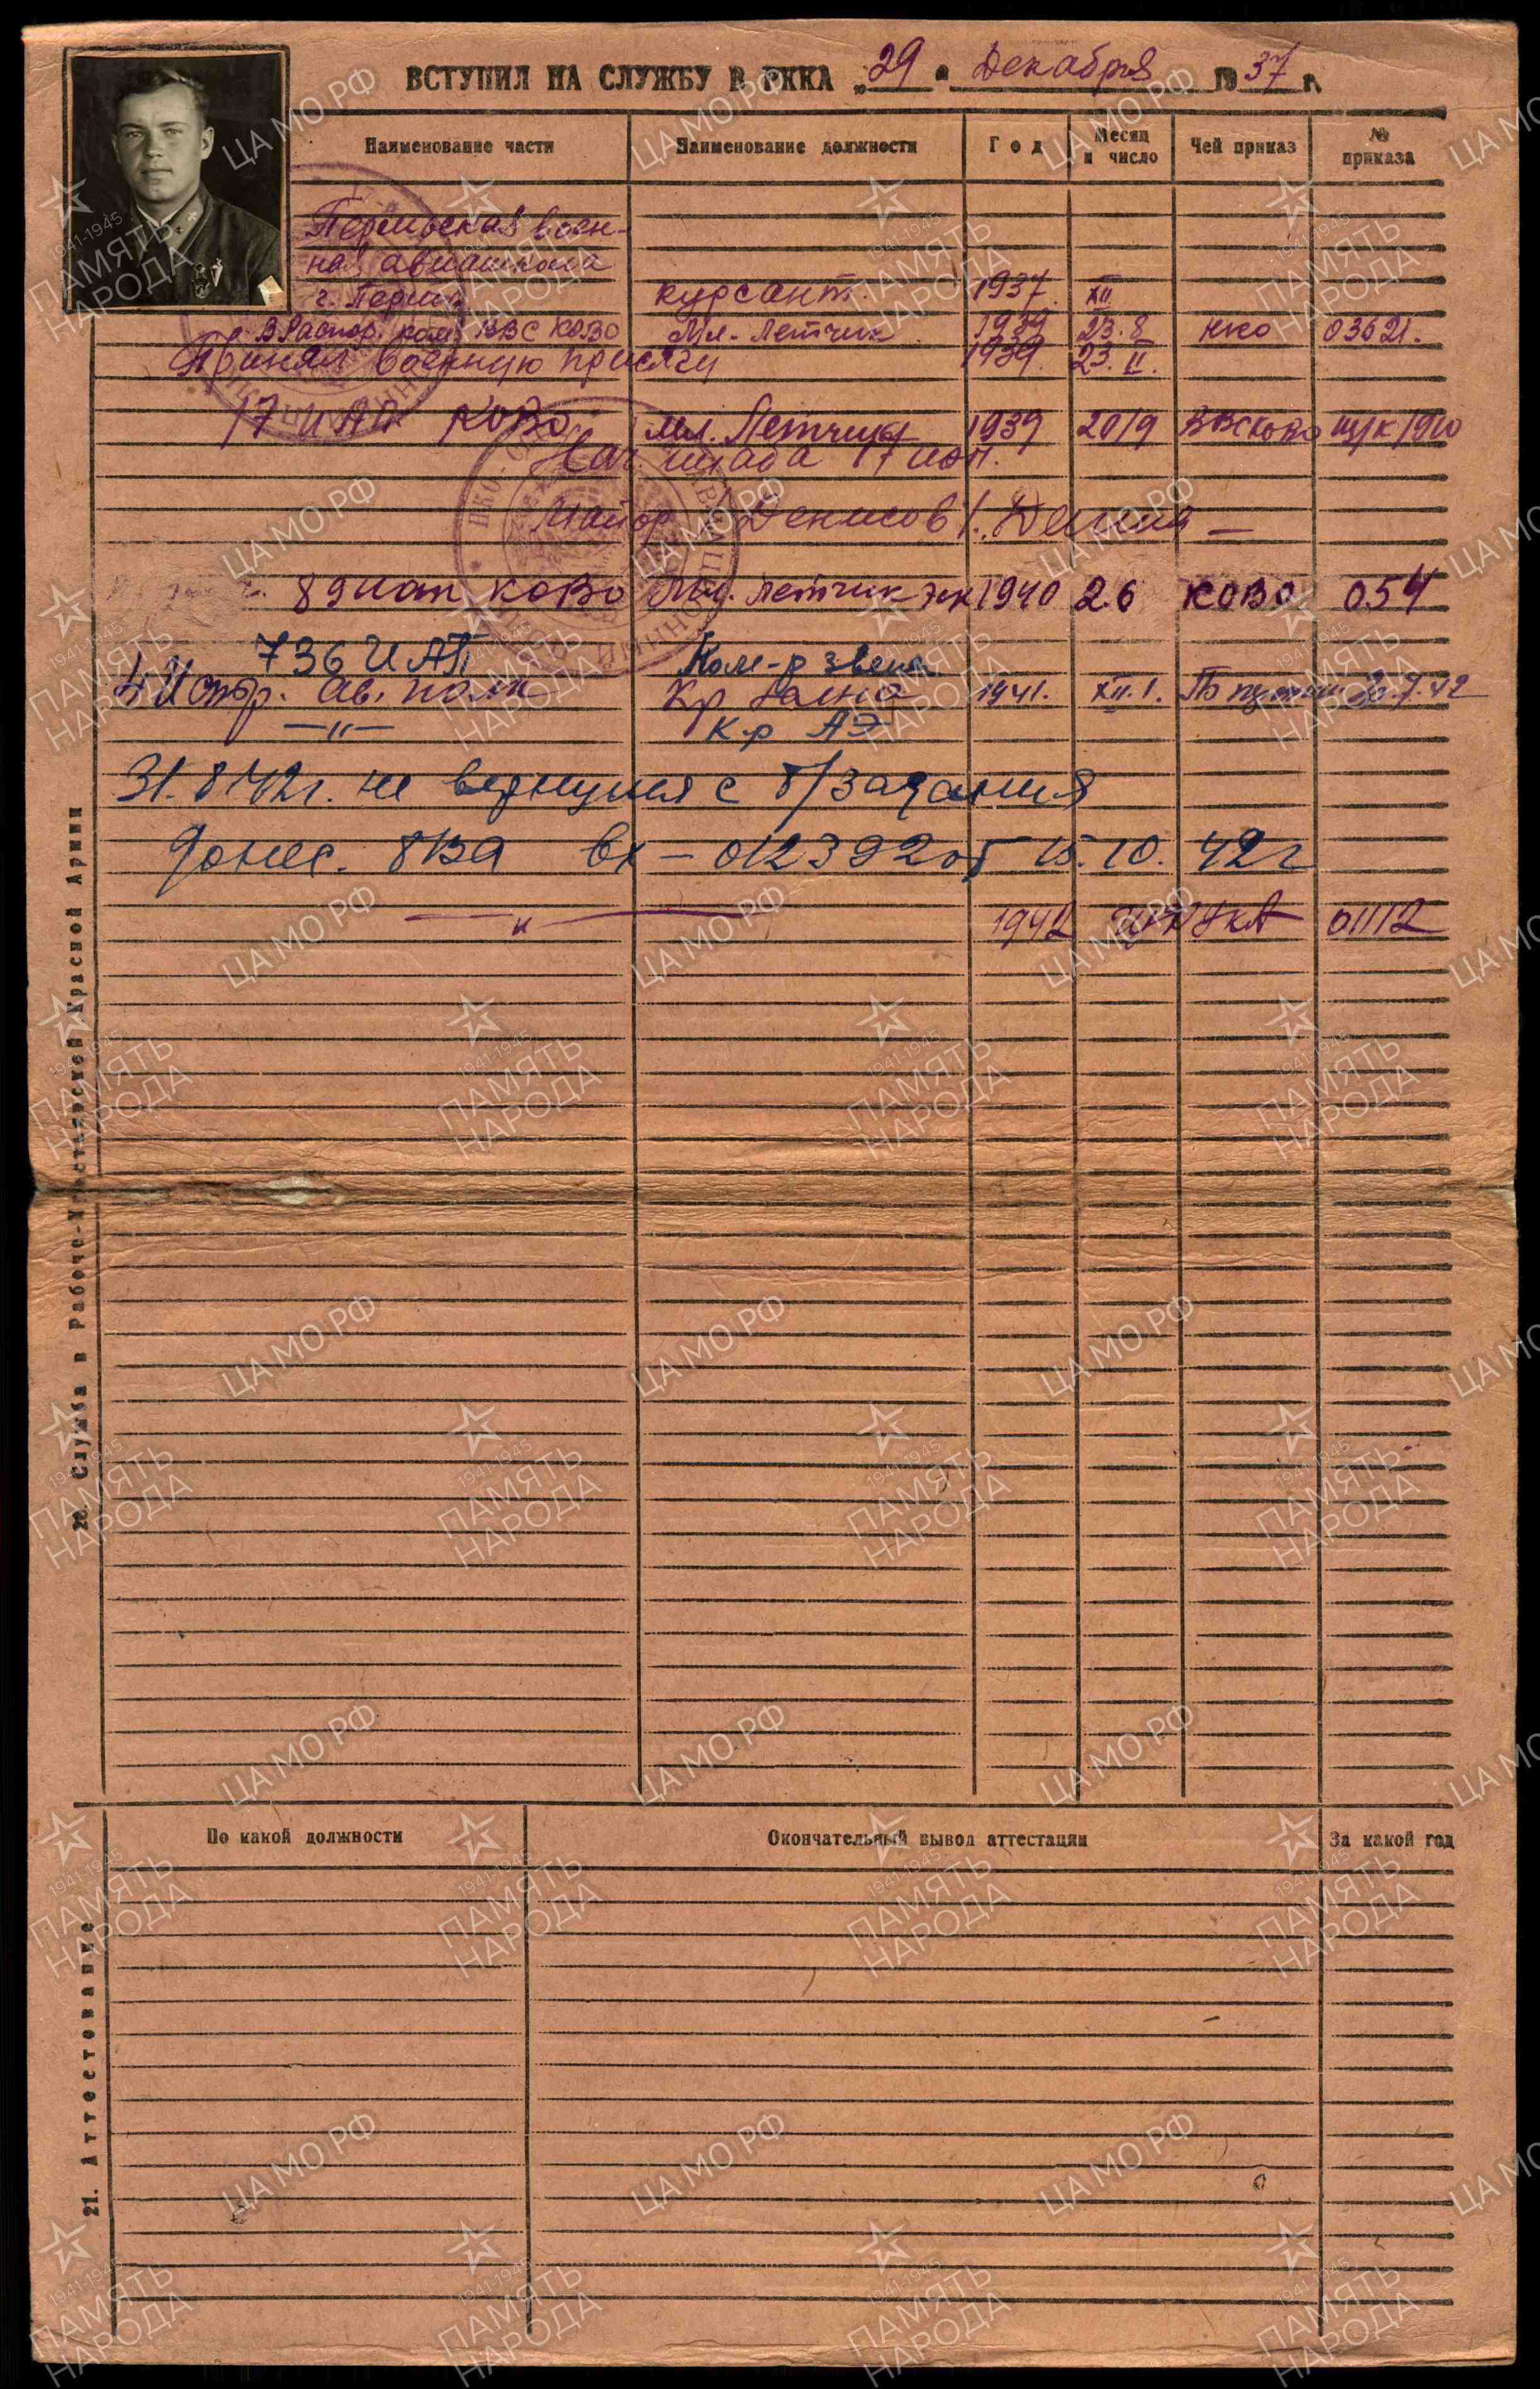 ВСТУПИЛ НА СЛУЖБУ В РККА „29" Декабря 1937 г.
Наименование части Наименование должности Год Месяц и число Чей приказ № приказа
Пермьская воен-
ная авиашкола
г. Пермь курсант. 1937. XII
В Распор. ком. ВВС КОВО Мл. Летчик 1939 23.8 НКО 03621.
Принял военную присягу 1939. 23.II.
17 ИАП КОВО Мл. Летчик 1939 20/9 ВВС КОВО
Нач. штаба 17 иап.
Майор /Денисов/.
89 иап КОВО Мл. летчик 1940 2.6 КОВО 054
736 ИАП Ком-р звена
4 Истр. ав. полк Кр звена 1941. XII.1. 30.7.42
—"— Кр АЭ
31.8.42г. не вернулся с б/задания
донес. 8ВА вх-012392 от 15.10.42г
—"— 1942 01112
20. Служба в Рабоче-Крестьянской Красной Армии
По какой должности Окончательный вывод аттестации За какой год
21. Аттестование
ЦАМО РФ
1941-1945
ПАМЯТЬ
НАРОДА